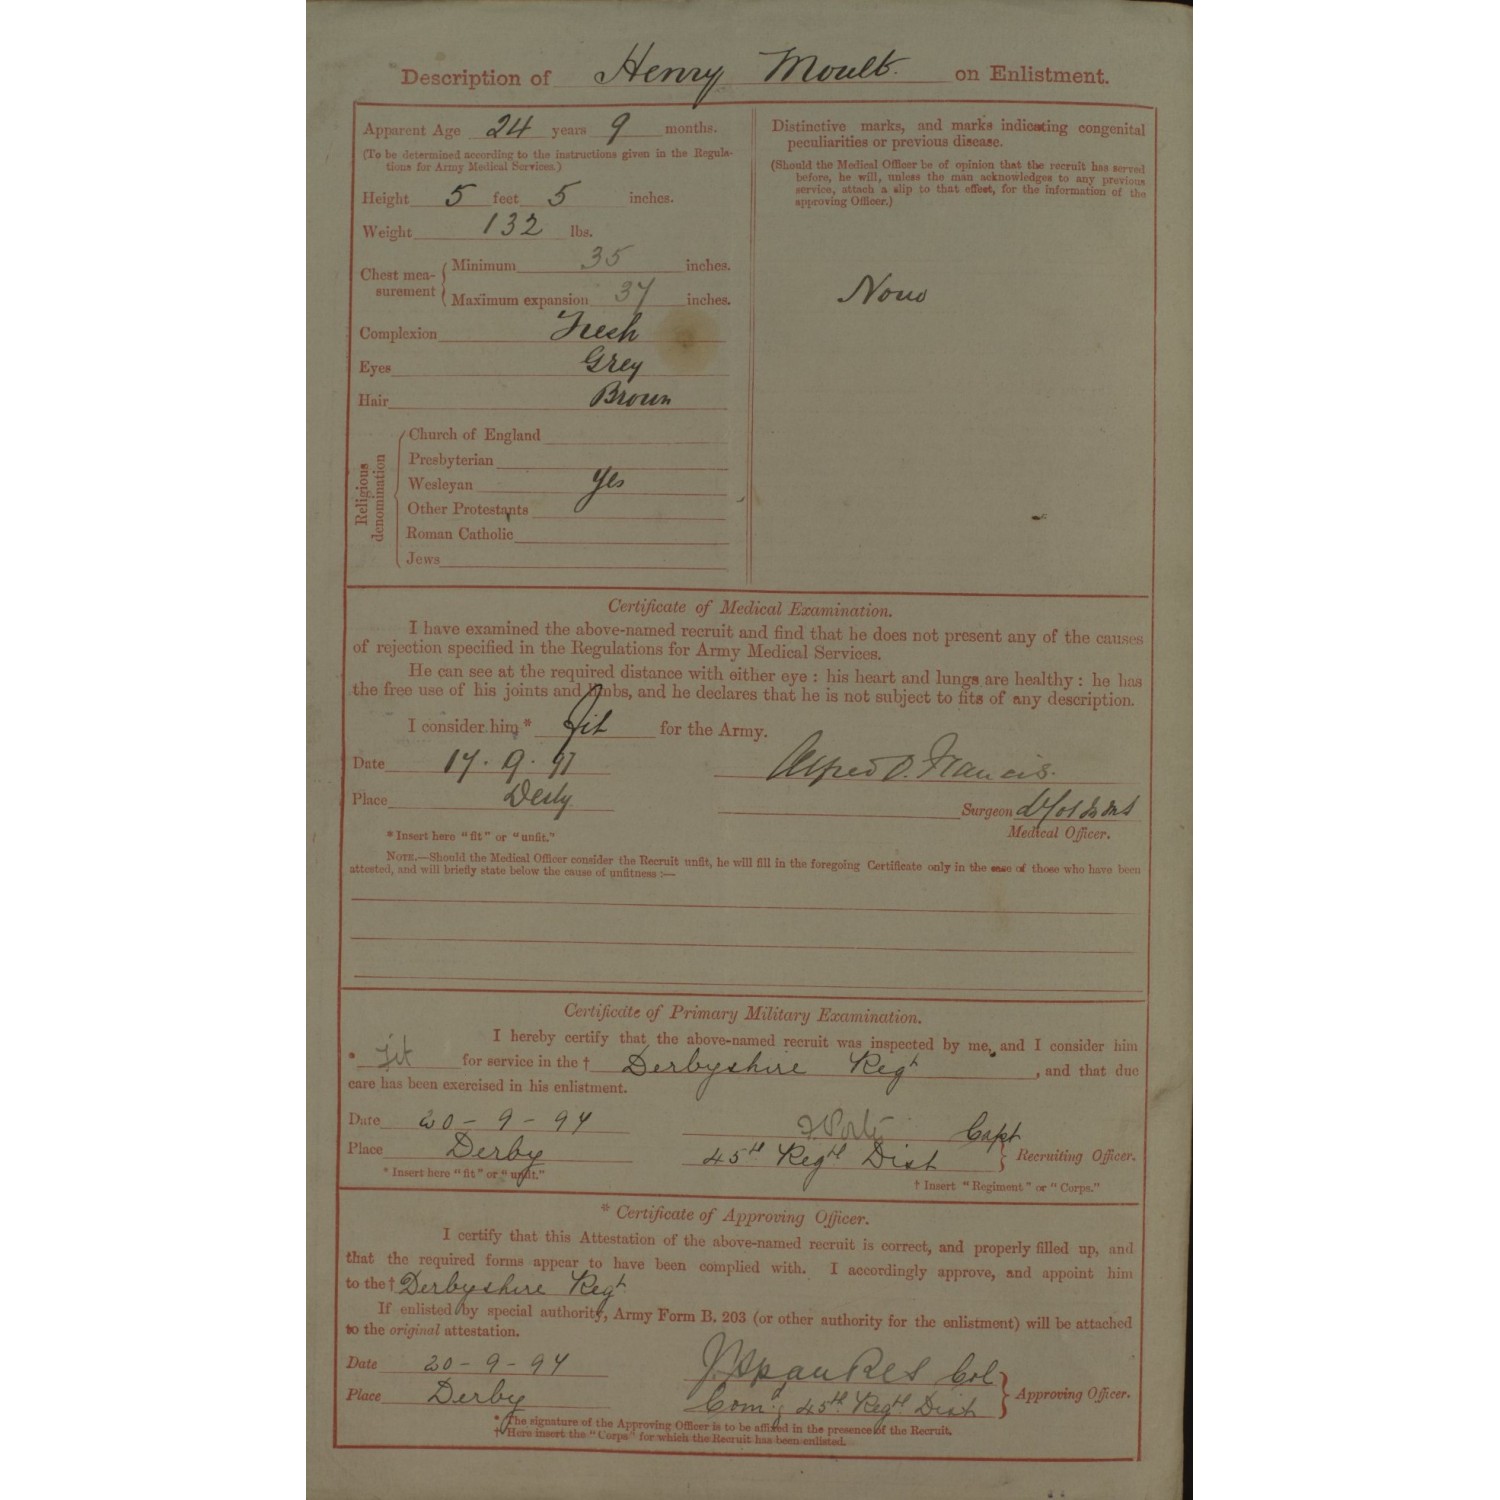 Description of Henry Moult. on Enlistment.
Apparent Age 24 years 9 months.
(To be determined according to the instructions given in the Regula-
tions for Army Medical Services.)
Height 5 feet 5 inches.
Weight 132 lbs.
Chest mea-
surement
Minimum 35 inches.
Maximum expansion 37 inches.
Complexion Fresh
Eyes Grey
Hair Brown
Religious
denomination
Church of England
Presbyterian
Wesleyan Yes
Other Protestants
Roman Catholic
Jews
Distinctive marks, and marks indicating congenital
peculiarities or previous disease.
(Should the Medical Officer be of opinion that the recruit has served
before, he will, unless the man acknowledges to any previous
service, attach a slip to that effect, for the information of the
approving Officer.)
None
Certificate of Medical Examination.
I have examined the above-named recruit and find that he does not present any of the causes
of rejection specified in the Regulations for Army Medical Services.
He can see at the required distance with either eye : his heart and lungs are healthy : he has
the free use of his joints and limbs, and he declares that he is not subject to fits of any description.
I consider him * fit for the Army.
Date 17. 9. 97
Alfred O. Francis.
Place Derby
Surgeon
Medical Officer.
* Insert here "fit" or "unfit."
NOTE.—Should the Medical Officer consider the Recruit unfit, he will fill in the foregoing Certificate only in the case of those who have been
attested, and will briefly state below the cause of unfitness :—
Certificate of Primary Military Examination.
I hereby certify that the above-named recruit was inspected by me, and I consider him
* fit for service in the † Derbyshire Regt, and that due
care has been exercised in his enlistment.
Date 20 - 9 - 97
Capt
Place Derby
45th Regtl Dist
Recruiting Officer.
* Insert here "fit" or "unfit."
† Insert "Regiment" or "Corps."
* Certificate of Approving Officer.
I certify that this Attestation of the above-named recruit is correct, and properly filled up, and
that the required forms appear to have been complied with. I accordingly approve, and appoint him
to the † Derbyshire Regt
If enlisted by special authority, Army Form B. 203 (or other authority for the enlistment) will be attached
to the original attestation.
Date 20 - 9 - 97
Col
Place Derby
Comg 45th Regtl Dist
Approving Officer.
* The signature of the Approving Officer is to be affixed in the presence of the Recruit.
† Here insert the "Corps" for which the Recruit has been enlisted.